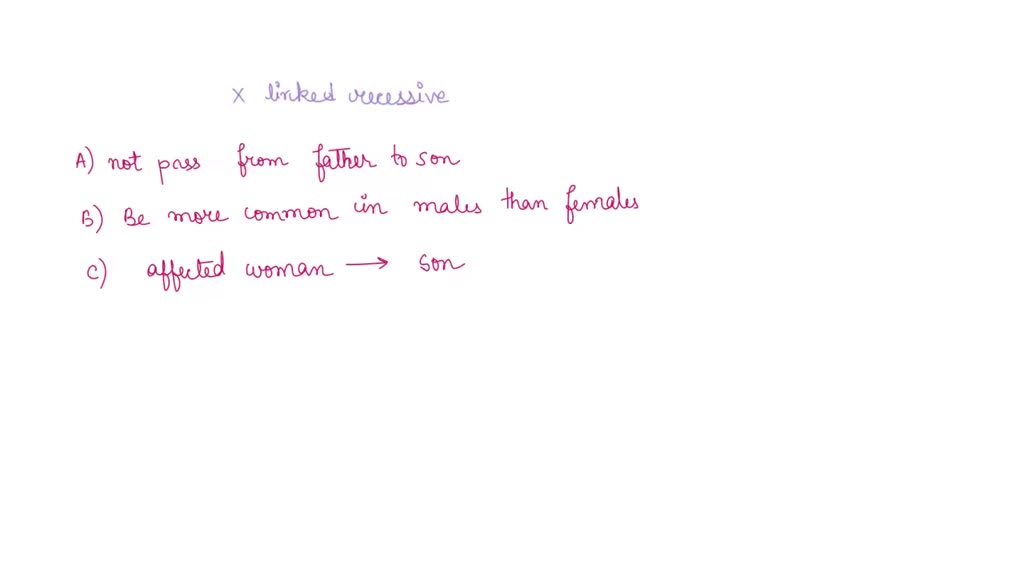 x linked recessive
A) not pass from father to son
B) Be more common in males than females
C) affected woman → son